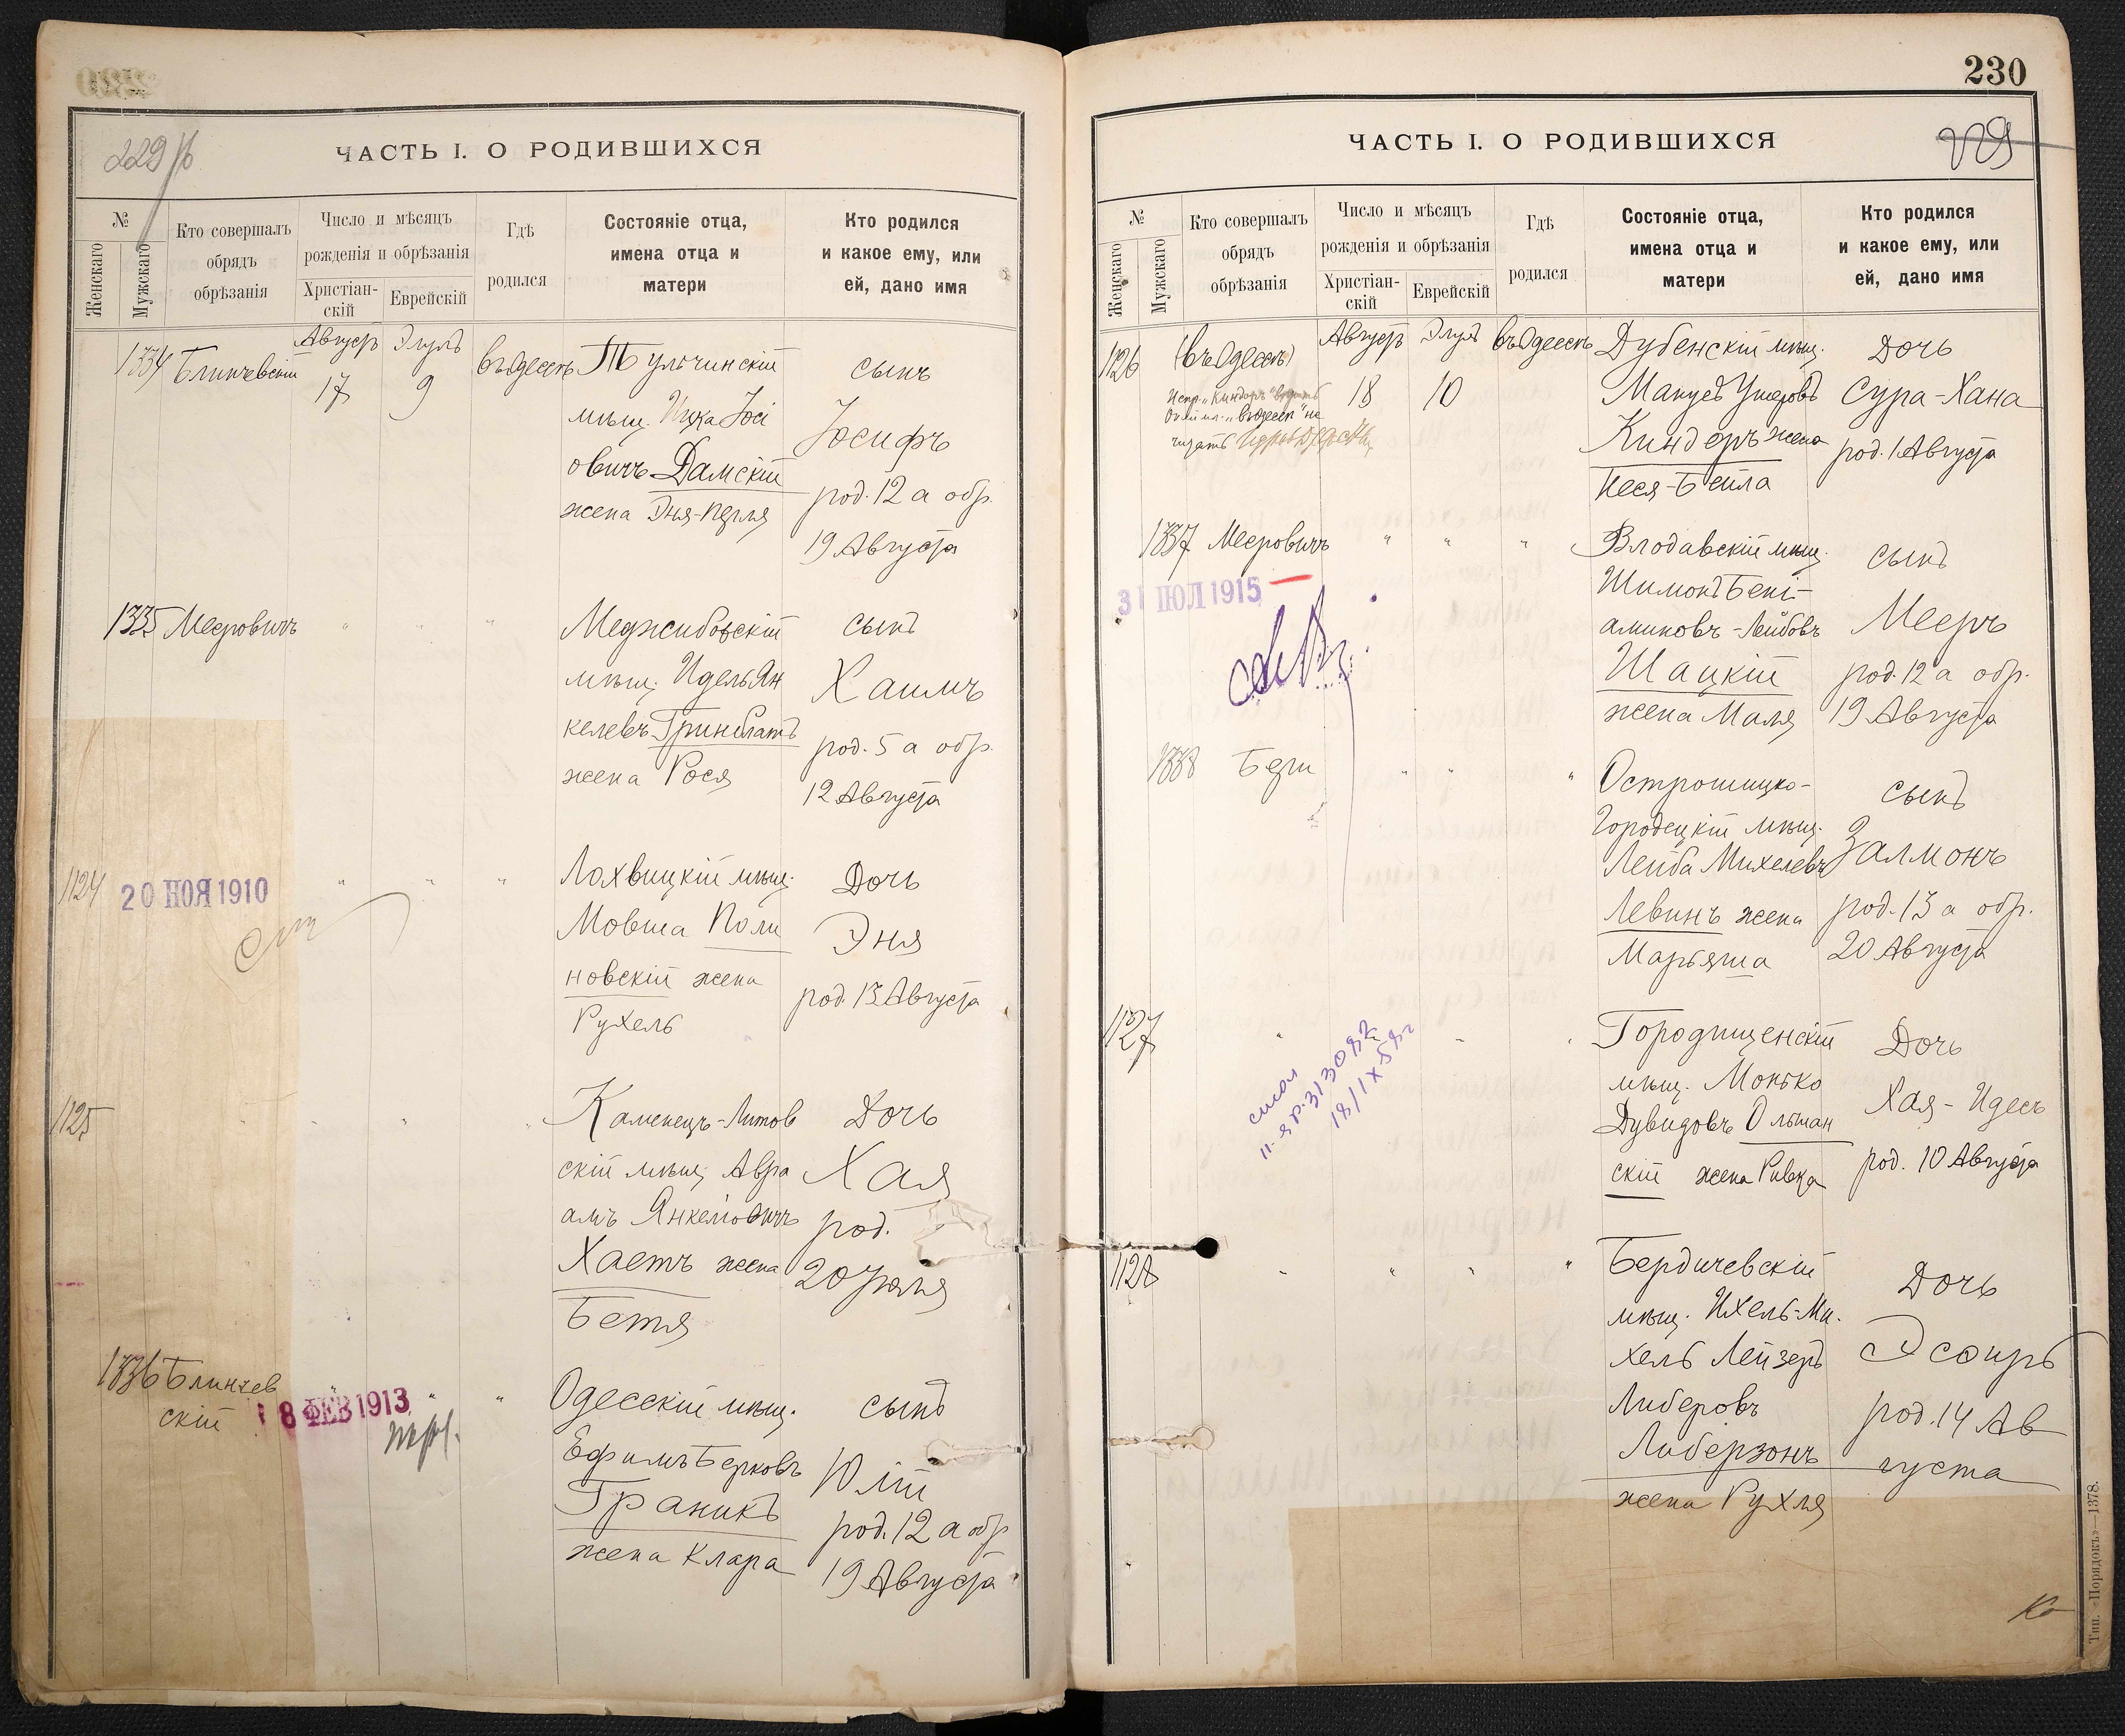 229 об
ЧАСТЬ I. О РОДИВШИХСЯ
№
Женскаго
Мужскаго
Кто совершалъ
обрядъ
обрѣзанія
Число и мѣсяцъ
рожденія и обрѣзанія
Христіан-
скій
Еврейскій
Гдѣ
родился
Состояніе отца,
имена отца и
матери
Кто родился
и какое ему, или
ей, дано имя
1334
Блинчевскій
Августъ
17
Элулъ
9
въ Одессѣ
Тульчинскій
мѣщ. Ицка Іосі
овичъ Дамскій
жена Эня-Перля
сынъ
Іосифъ
род. 12 а обр.
19 Августа
1335 Мееровичъ
" " "
Меджибовскій
мѣщ. Идель Ян
келевъ Гринблатъ
жена Рося
сынъ
Хаимъ
род. 5 а обр.
12 Августа
1124
20 НОЯ 1910
" " "
Лохвицкій мѣщ.
Мовша Поли
новскій жена
Рухель
Дочь
Эня
род. 13 Августа
1125
" " "
Каменецъ-Литов
скій мѣщ. Авра
амъ Янкелiовичъ
Хаетъ жена
Бетя
Дочь
Хая
род.
20 Іюля
1336 Блинчев
скій
8 ФЕВ 1913
" "
Одесскій мѣщ.
Ефимъ Берковъ
Граникъ
жена Клара
сынъ
Юлій
род. 12 а обр
19 Августа
230
229
ЧАСТЬ I. О РОДИВШИХСЯ
№
Женскаго
Мужскаго
Кто совершалъ
обрядъ
обрѣзанія
Число и мѣсяцъ
рожденія и обрѣзанія
Христіан-
скій
Еврейскій
Гдѣ
родился
Состояніе отца,
имена отца и
матери
Кто родился
и какое ему, или
ей, дано имя
1126
(въ Одессѣ)
Испр. „Киндеръ"
„въ Одессѣ" не
читать
Августъ
18
Элулъ
10
въ Одессѣ
Дубенскій мѣщ.
Манусъ Ушеровъ
Киндеръ жена
Песя-Бейла
Дочь
Сура-Хана
род. 1 Августа
1337 Мееровичъ
" " "
31 ІЮЛ 1915
Влодавскій мѣщ.
Шимонъ Бені-
аминовъ-Лейбовъ
Шацкій
жена Маля
сынъ
Мееръ
род. 12 а обр.
19 Августа
1338 Бери
" " "
Острошицко-
Городецкій мѣщ.
Лейба Михелевъ
Левинъ жена
Марьяша
сынъ
Залмонъ
род. 13 а обр.
20 Августа
1127
313082
18/IX 58г
Городищенскій
мѣщ. Монько
Дувидовъ Ольшан
скій жена Ривка
Дочь
Хая-Идесъ
род. 10 Августа
1128
" " "
Бердичевскій
мѣщ. Ихель-Ми-
хель Лейзеръ
Либеровъ
Либерзонъ
жена Рухля
Дочь
Эсѳирь
род. 14 Ав
густа
Тип. «Порядокъ»—1378.